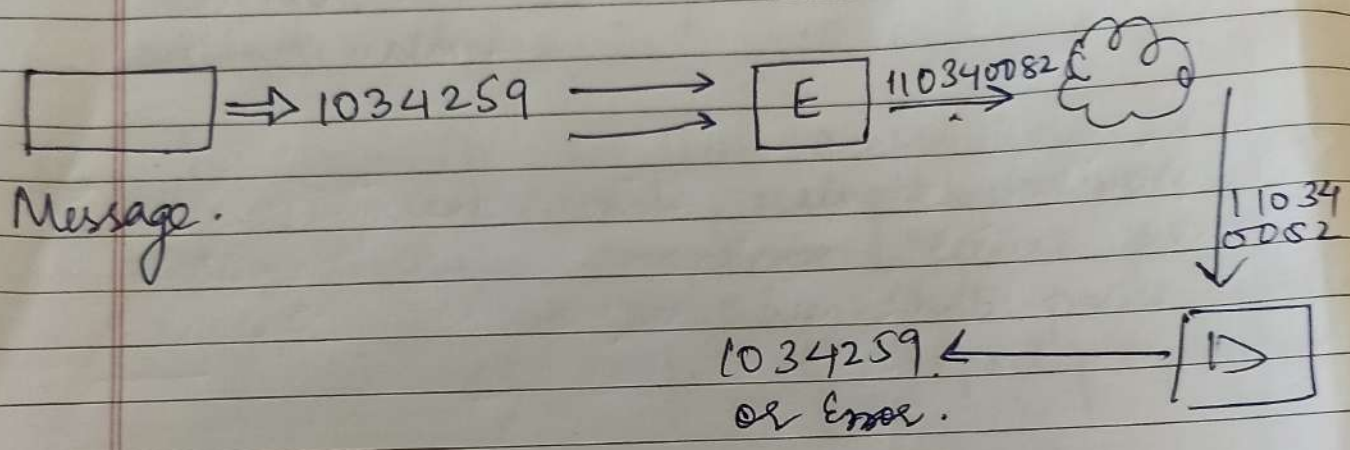 1034259
E
110340082
Message.
11034
0082
1034259
D
or Error.